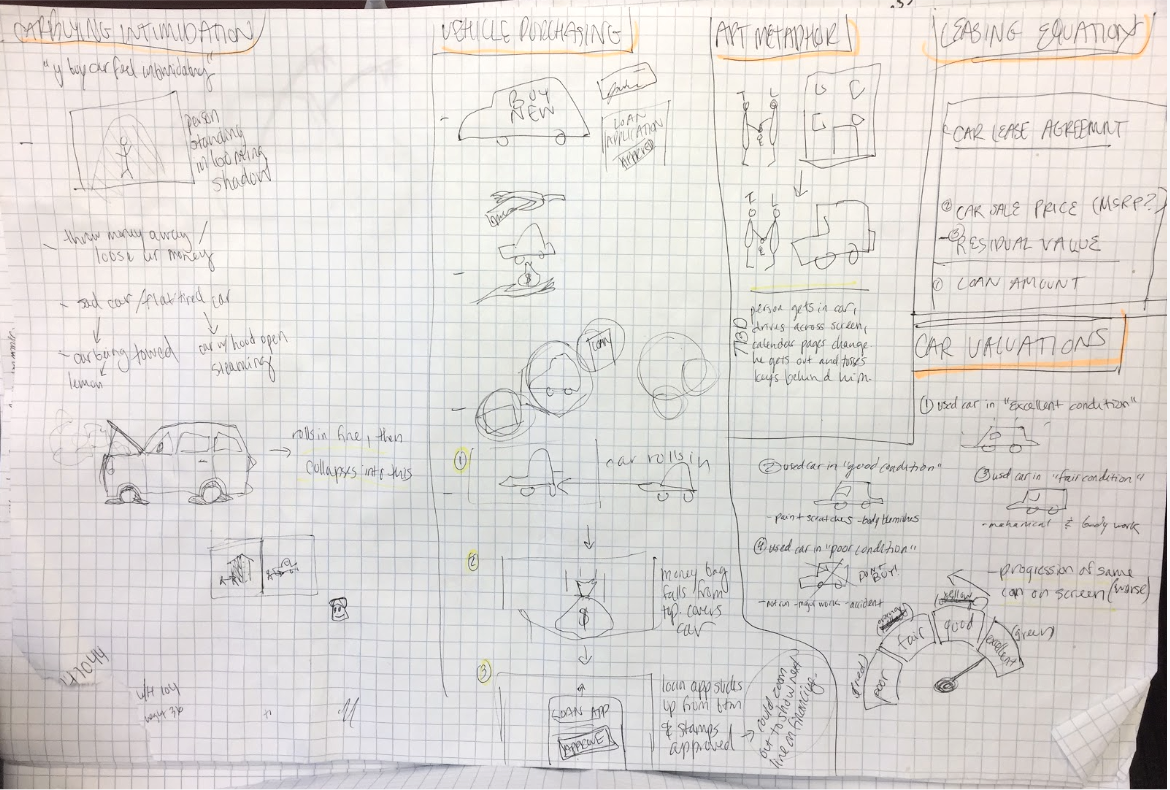 CAR BUYING INTIMIDATION
person
standing
w/ looming
shadow
throw money away /
loose ur money
- sad car/flat tired car
- car being towed
lemon
car w/ hood open
steaming
rolls in fine, then
collapses into this
VEHICLE PURCHASING
BUY
NEW
LOAN
APPLICATION
①
car rolls in
②
$
money bag
falls from
top, covers
car
③
LOAN APP
loan app slides
up from btm
& stamps
approved
could zoom
out to show next
line on financing.
ART METAPHOR
T L
T L
TBD
person gets in car,
drives across screen,
calendar pages change.
he gets out and tosses
keys behind him.
LEASING EQUATION
CAR LEASE AGREEMNT
② CAR SALE PRICE (MSRP?)
- ③ RESIDUAL VALUE
① LOAN AMOUNT
CAR VALUATIONS
① used car in "excellent condition"
② used car in "good condition"
- paint scratches - body blemishes
③ used car in "fair condition"
- mechanical & body work
④ used car in "poor condition"
DON'T
BUY!
- not run - major work - accident
- progression of same
car on screen (worse)
(red)
poor
fair
yellow
good
excellent
(green)